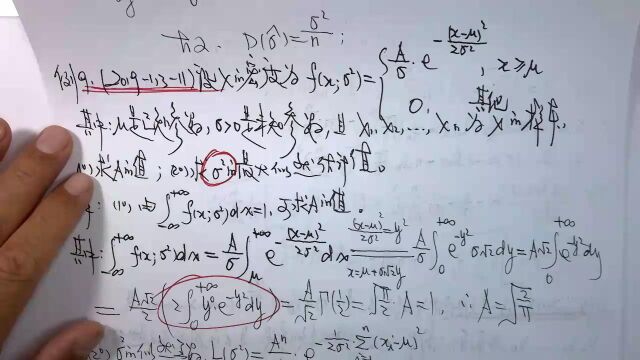 方2. D(σ̂)=σ²/n;
例9. (2019-1,3-11) 设X的密度为 f(x;σ²)={ A/σ·e^{-(x-μ)²/2σ²}, x≥μ
0, 其他
其中:μ是已知参数, σ>0是未知参数, 且X₁,X₂,…,Xₙ为X的样本.
(1)求A的值; (2)求σ²的最大似然估计值。
(1), 由∫_{-∞}^{+∞} f(x;σ²)dx=1, 可求A的值.
其中:∫_{-∞}^{+∞} f(x;σ²)dx = A/σ ∫_μ^{+∞} e^{-(x-μ)²/2σ²}dx (x-μ)²/2σ²=y² x=μ+σ√2y A/σ ∫_0^{+∞} e^{-y²} σ√2dy = A√2∫_0^{+∞} e^{-y²}dy
= A√2/2 (2∫_0^{+∞} y⁰·e^{-y²}dy) = A/√2 Γ(1/2) = √(π/2) A = 1, ∴ A=√(2/π)
L(σ²)= Aⁿ e^{-1/2σ² Σ(xᵢ-μ)²}